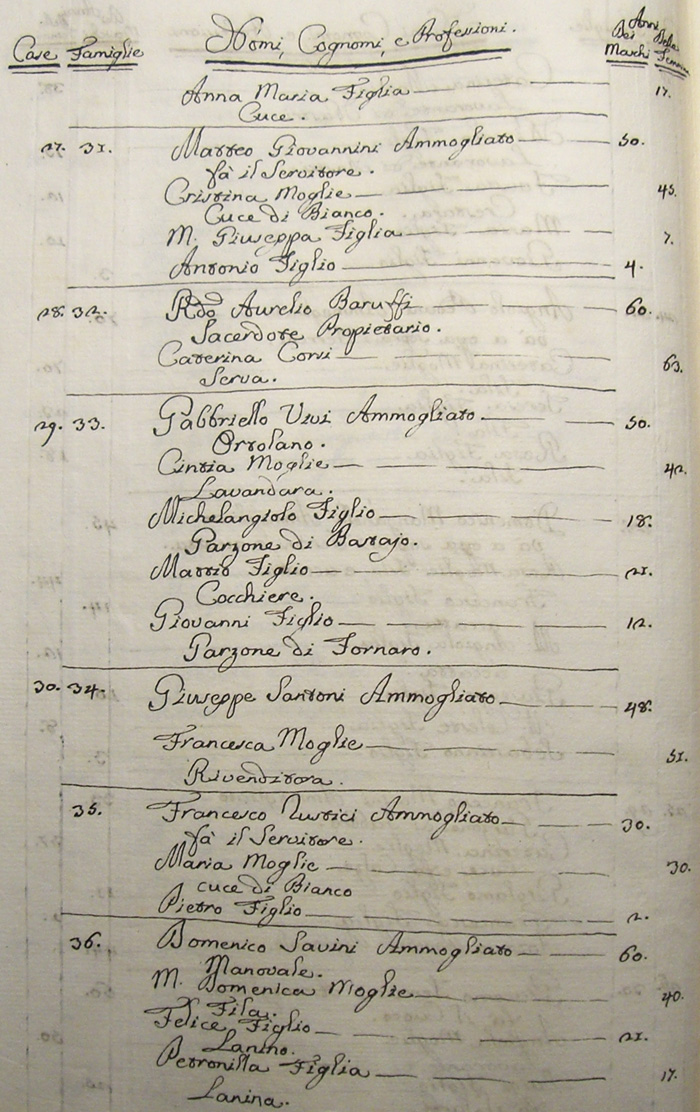 Case Famiglie Nomi, Cognomi, e Professioni. Anni Dei Maschi Delle Femmine
Anna Maria Figlia 17.
Cuce.
27. 31. Matteo Giovannini Ammogliato 50.
fà il Servitore.
Cristina Moglie 45.
Cuce di Bianco.
M. Giuseppa Figlia 7.
Antonio Figlio 4.
28. 32. Rdo Aurelio Baruffi 60.
Sacerdote Propietario.
Caterina Corsi 63.
Serva.
29. 33. Gabbriello Vivi Ammogliato 50.
Ortolano.
Cintia Moglie 42.
Lavandara.
Michelangiolo Figlio 18.
Garzone di Bastajo.
Mattio Figlio 21.
Cocchiere.
Giovanni Figlio 12.
Garzone di Fornaro.
30. 34. Giuseppe Santoni Ammogliato 48.
Francesca Moglie 51.
Rivenditora.
35. Francesco Rustici Ammogliato 30.
fà il Servitore.
Maria Moglie 30.
cuce di Bianco
Pietro Figlio 2.
36. Domenico Savini Ammogliato 60.
Manovale.
M. Domenica Moglie 40.
Fila.
Felice Figlio 21.
Lanino.
Petronilla Figlia 17.
Lanina.